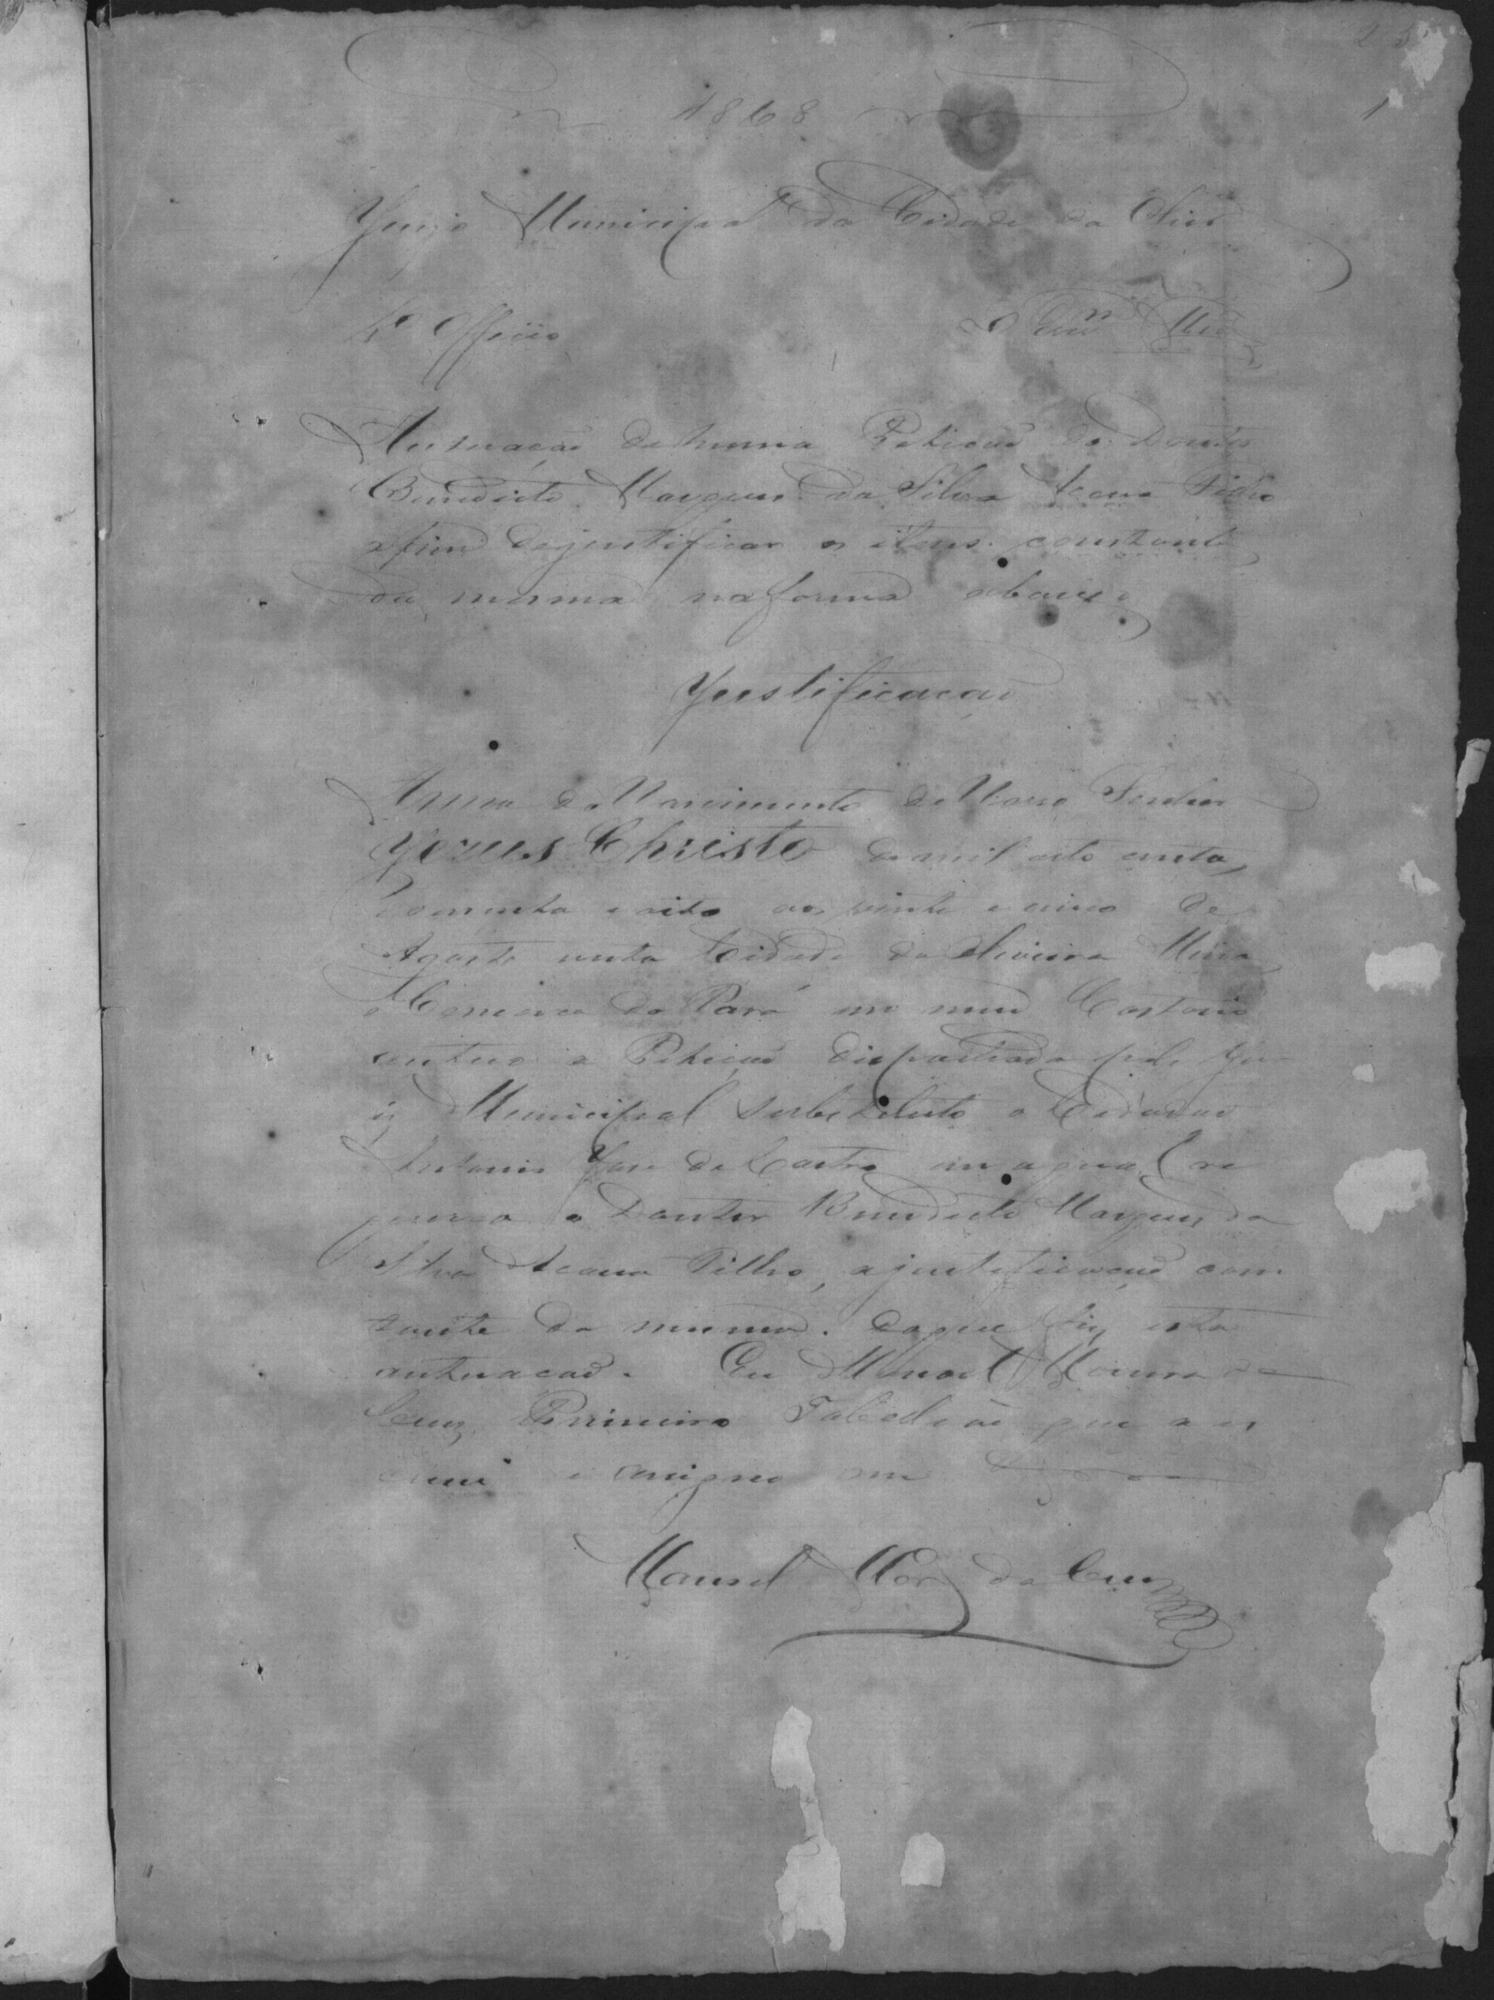 1868
Juizo Municipal da Cidade da Olivr
1º Officio
Autuação de huma Petição do Doutor
Benedicto Marques da Silva Acaua Filho
afim de justificar os itens constante
da mesma na forma abaixo
Justificação
Anno do Nascimento de Nosso Senhor
Jezus Christo de mil oito centos
secenta e oito aos vinte e cinco de
Agosto nesta Cidade da Oliveira Minas
e Comarca do Pará em meu Cartorio
autuo a Petição dispachada pelo Ju-
iz Municipal Substituto o Cidadão
Antonio Jose de Castro em a qual re
quereo o Doutor Benedicto Marques da
Silva Acaua Filho, a justificação cons
tante da mesma. Do que fiz esta
autuacão. Eu Manoel
Cruz Primeiro Tabelião que a es
crevi e assigno em
Manoel da Cruz